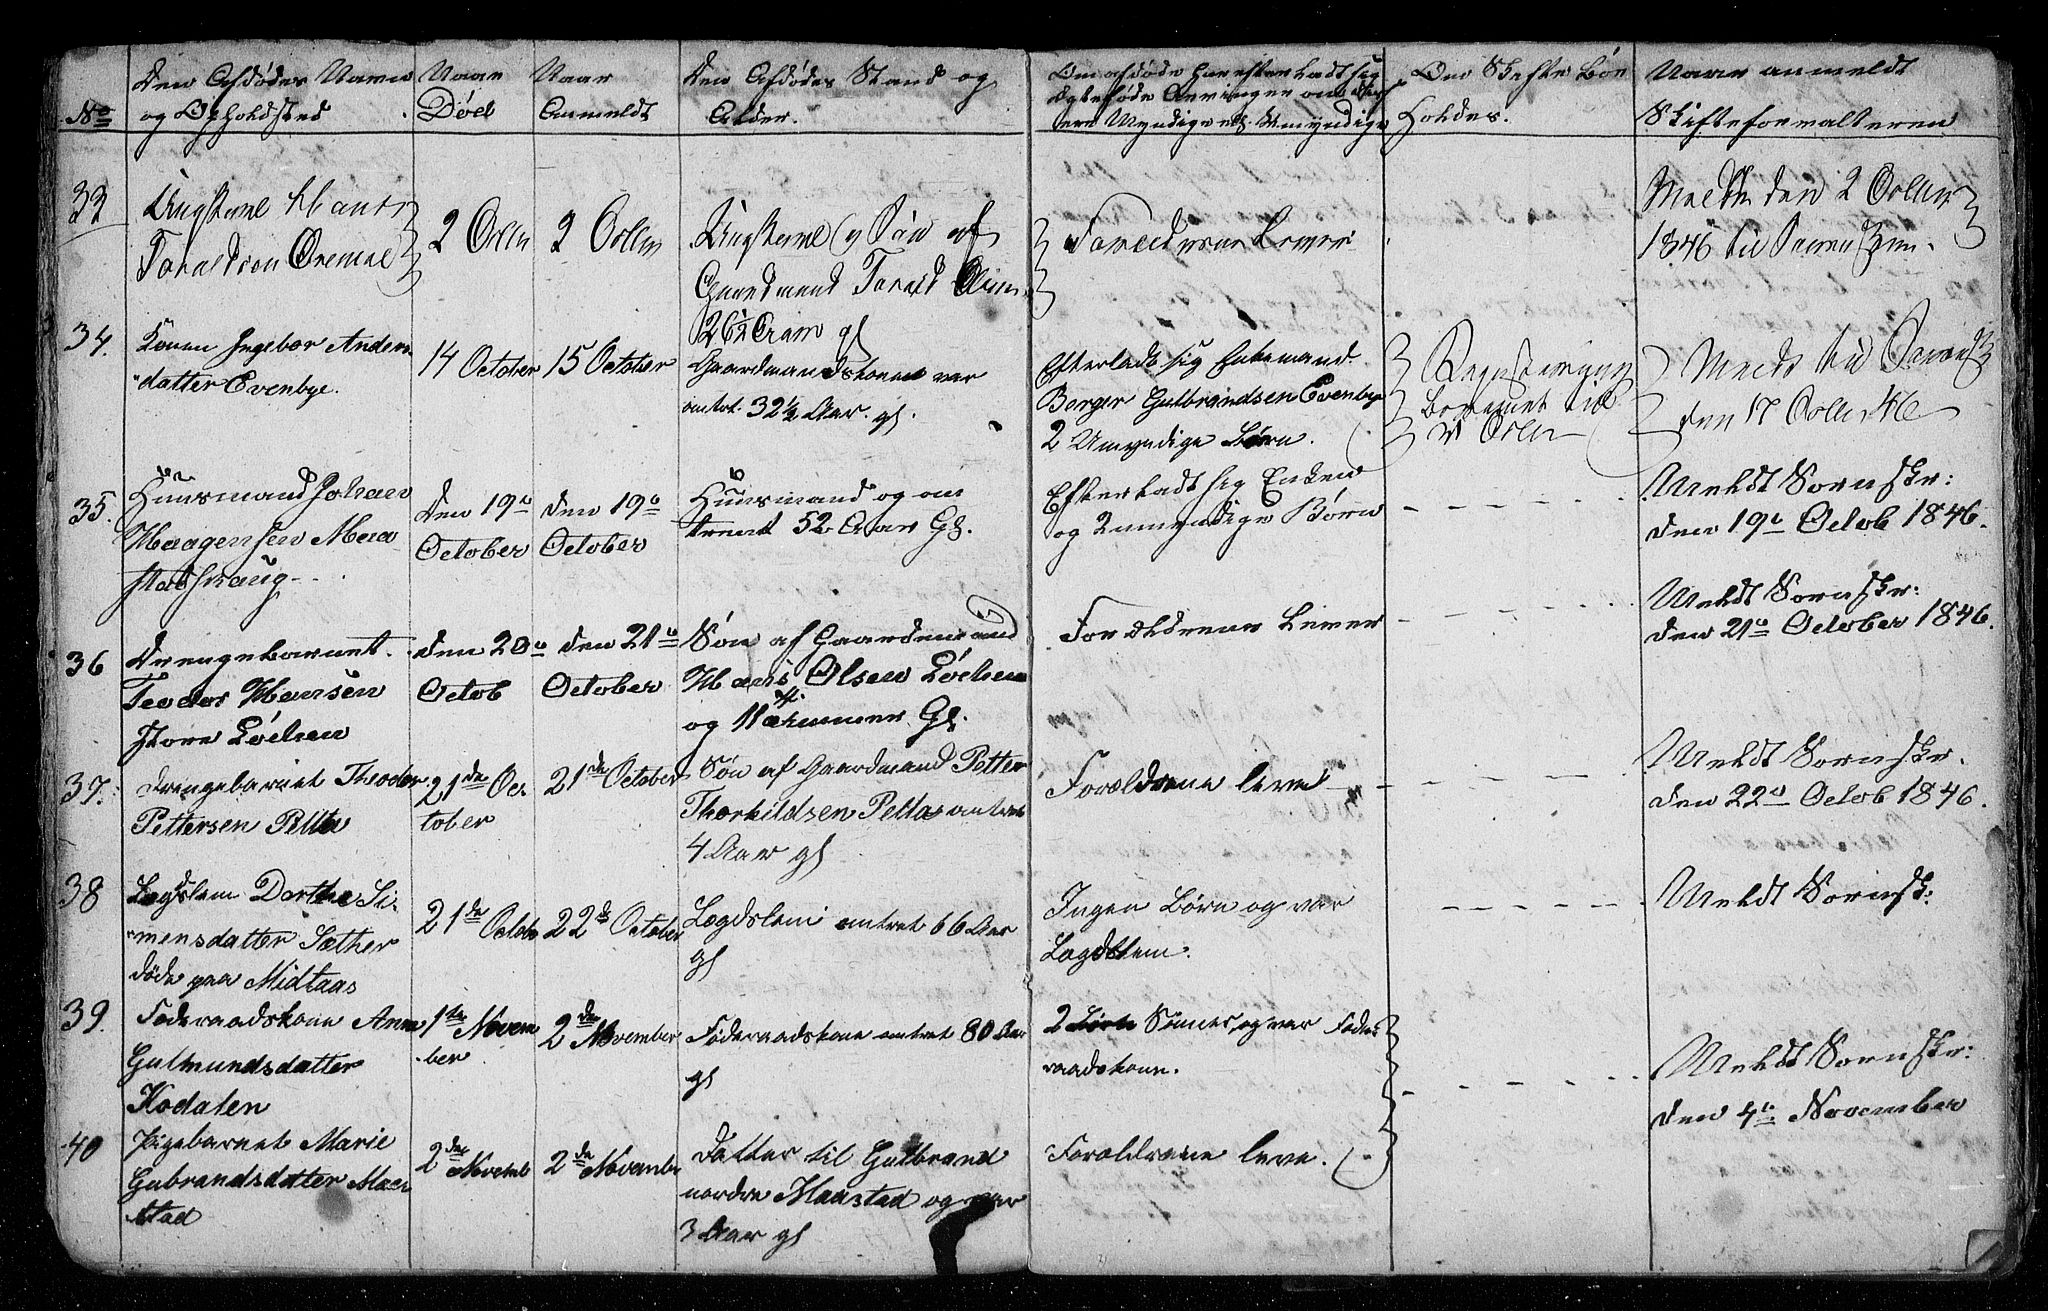 No
Den Afdødes Navn
og Opholdsted
Naar
Døed
Naar
Anmeldt
Den Afdødes Stand og
Alder.
Om afdøde har efterladt sig
Om Skifte bør
Holdes.
Naar anmeldt
Skifteforvalteren
33
Ungkarl Hans
2 Octbr
2 Octbr
Ungkarl Søn af
Gaardmand
26½ Aar gl
Forældrene Lever
den 2 Octbr
1846 til
34.
Konen Ingebor Anders
datter Evenbye.
14 October
15 October
Gaardmandskone var
omtrt. 32½ Aar. gl.
Efterladt sig Enkemand
Berger Gulbrandsen Evenbye
2 Umyndige Børn.
Meldt til
den 17 Octbr 46
35.
Huusmand Johan
Haagensen
Den 19de
October
Den 19de
October
Huusmand og om
trent 52 Aar Gl.
Efterladt sig Enken
og Umyndige Børn
Meldt Sornskr:
Den 19de Octob 1846.
36
Drengebarnet
Teodor Hansen
store Løchen
Den 20de
Octob
Den 21de
October
Søn af Gaardmand
Hans Olsen Løchen
og 11 Gl.
Forældrene Lever
Meldt Sornskr:
Den 21de October 1846.
37.
Drengebarnet Theodor
Pettersen Pelta
21de Oc-
tober
21de October
Søn af Gaardmand Petter
Thorkildsen Pelta omtret
4 Aar gl
Forældrene leve
Meldt Sornskr.
Den 22de Octob 1846.
38
Lægdslem Dorthe Si-
mensdatter Sæther
døde paa Midtaas
21de Octob
22de October
Lægdslem omtret 66 Aar
gl
Ingen Børn og var
Lægdslem.
Meldt Sornsk:
39.
Føderaadskone Anne
Gulmundsdatter
Kodalen
1ste Novem
ber
2den November
Føderaadskone omtret 80 Aar
gl
2 Sønner, og var Føde
raadskone.
Meldt Sornskr:
Den 4de November
40
Pigebarnet Marie
Gubrandsdatter Maa
stad
2den Novemb
2den Novembr
Datter til Gulbrand
nordre Maastad og var
3 Aar gl
Forældrene leve.